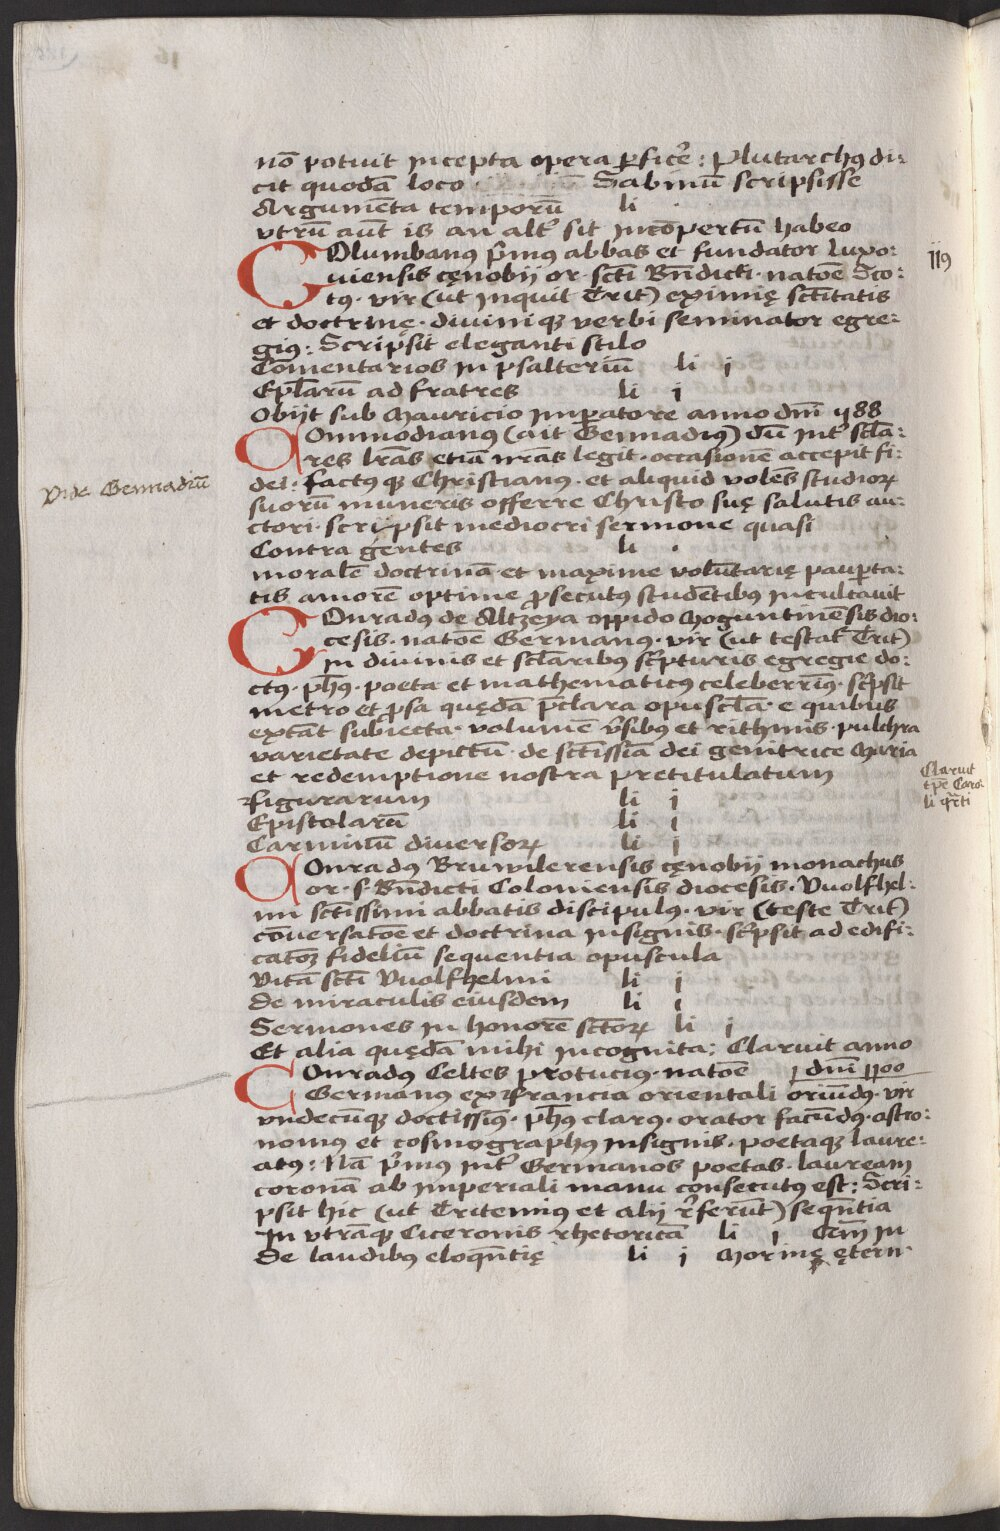 nō potuit incepta opera ꝑficẽ: Plutarchꝰ di:
cit quodā loco Sabinū scripsisse
Argumēta temporū li
vtrū aūt is an alt̃ sit incōpertū habeo
COlumbanꝰ p̃mus abbas et fundator luxo:
uiensis cęnobij or. sc̄ti Bn̄dicti. natōe Sco:
tꝰ. vir (ut inquit Trit) eximię sc̄titatis
et doctrinę. diuiniqꝫ verbi seminator egre:
giꝰ: Scripsit eleganti stilo
Cōmentarios in psalteriū li j
Epl̄arū ad fratres li j
Obijt sub Mauricio imꝑatore anno dn̄i 988
COnmodianꝰ (ait Gennadiꝰ) dū int̃ scl̄a:
res lr̄as etiā nr̄as legit. occasionē accepit fi:
dei. factꝰqꝫ Christianꝰ. et aliquid volēs studioꝝ
suorū muneris offerre Christo suę salutis au:
ctori. scripsit mediocri sermone quasi
Contra gentes li
moralē doctrinā et maxime volūtarię pauꝑta:
tis amorē optime ꝓsecutꝰ studētibus inculcauit
COnradꝰ de Altzeya oppido Moguntinēsis dio:
cesis. natōe Germanꝰ. vir (ut testat̃ Trit)
in diuinis et scl̄aribꝰ sc̃pturis egregie do:
ctꝰ. ph̄ꝰ. poeta et mathematicꝰ celeberrīꝰ. sc̃psit
metro et ꝓsa quędā p̃clara opuscl̄a. e quibus
extāt subiecta. volumē ṽsibꝰ et rithmis. pulchra
varietate depictū. de sc̄tissīa dei genitrice Maria
et redemptione nostra pretitulatum
Figurarum li j
Epistolarū li j
Carminū diuersoꝝ li j
COnradꝰ Bruwilerensis cęnobij monachus
or. s. Bn̄dicti Coloniensis diocesis. Vuolfhel:
mi sc̄tissimi abbatis discipulꝰ. vir (teste Trit)
cōuersatōe et doctrina insignis. sc̃psit ad edifi:
catōꝫ fidelīū sequentia opuscula
Vitā sc̄ti Vuolfhelmi li j
De miraculis eiusdem li j
Sermones in honorē sc̄toꝝ li j
Et alia quędā mihi incognita: Claruit anno
dn̄i 1100
COnradꝰ Celtes protucius. natōe
Germanus ex Francia orientali oriūdꝰ. vir
vndecūqꝫ doctissīꝰ. ph̄ꝰ clarꝰ. orator facūdꝰ. astro:
nomus et cosmographꝰ insignis. poetaqꝫ laure:
atꝰ: Nā p̃mus int̃ Germanos poetas. lauream
coronā ab imperiali manu consecutꝰ est: Scri:
psit hic (ut Tritemius et alij r̃ferūt) seqn̄tia
In vtrāqꝫ Ciceronis rhetoricā li j
De laudibꝰ eloqn̄tię li j
119
Vide Gennadiū
Claruit
tp̄e Caro
li qr̄ti